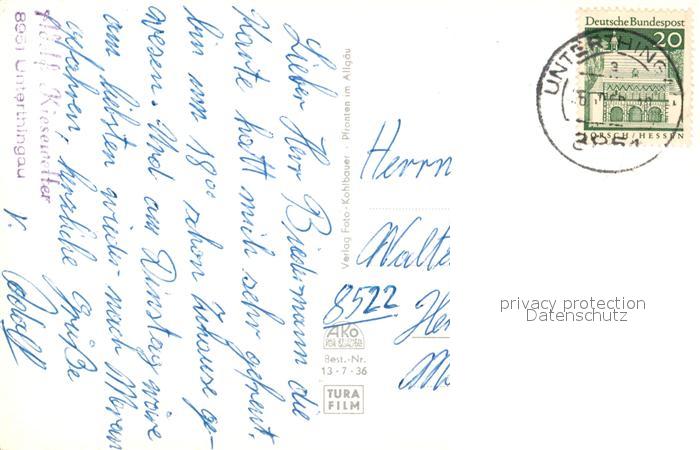 Lieber Herr Biedermann die
Karte hatt mich sehr gefreut.
bin um 18⁰⁰ schon zuhause ge-
wesen. Und am Dinstag wäre
am liebsten wieder nach Meran
gefahren, herzliche Grüße
v. Adolf
Adolf Kiesewetter
8951 Unterthingau
Verlag Foto-Kohlbauer · Pfronten im Allgäu
Herrn
Walte
8522 He
AKO
Best.-Nr.
13 - 7 - 36
TURA
FILM
Deutsche Bundespost
20
LORSCH/HESSEN
UNTERTHING
8951
privacy protection
Datenschutz